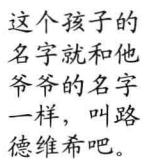 这个孩子的
名字就和他
爷爷的名字
一样，叫路
德维希吧。